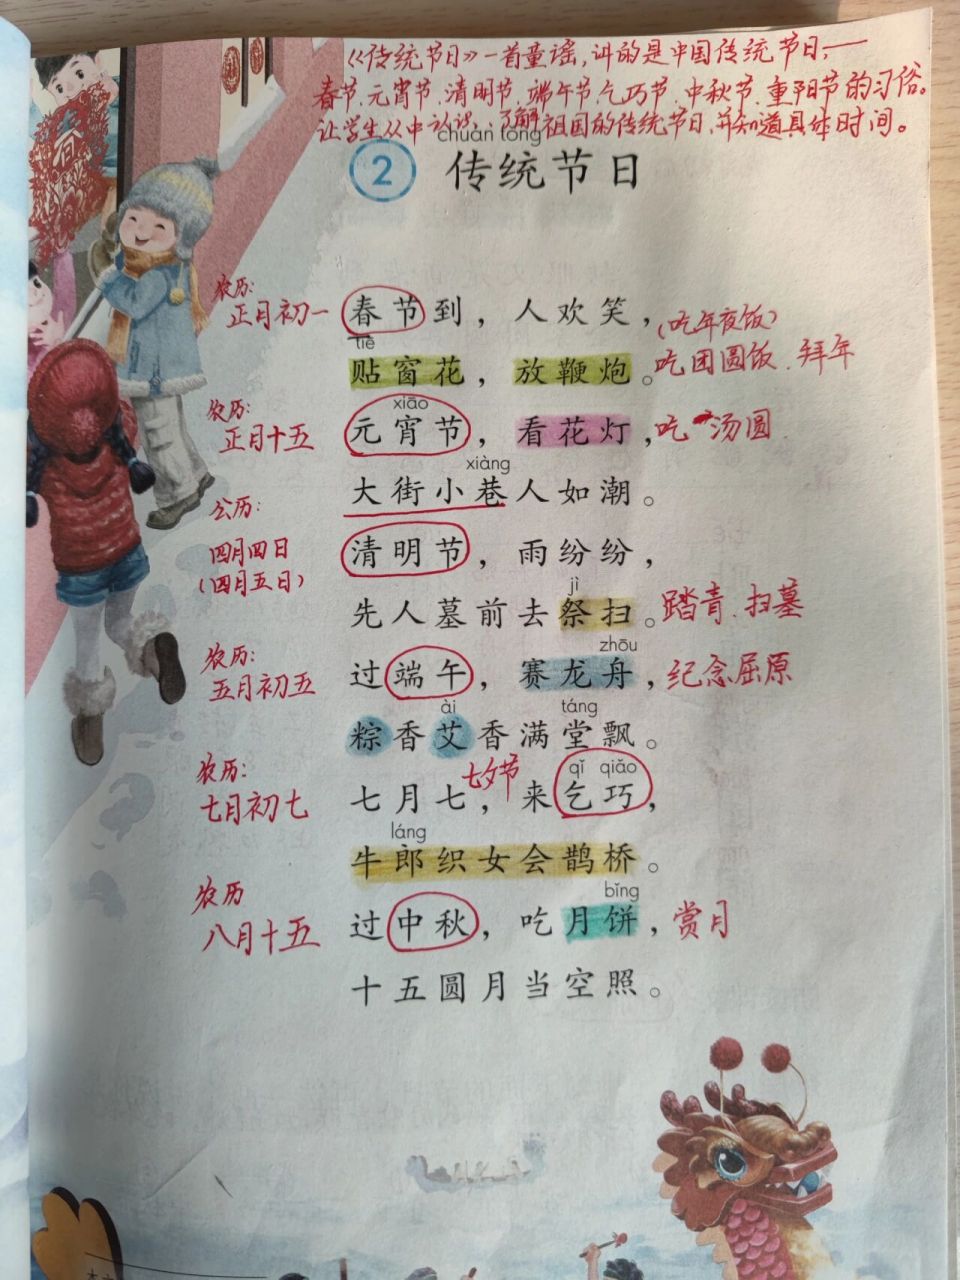 《传统节日》一首童谣，讲的是中国传统节日，——
春节、元宵节、清明节、端午节、乞巧节、中秋节、重阳节的习俗。
让学生从中认识、了解祖国的传统节日，并知道具体时间。
chuán tǒng
2 传统节日
农历：
正月初一 春节到，人欢笑，（吃年夜饭）
tiē
贴窗花，放鞭炮。吃团圆饭、拜年
农历： xiāo
正月十五 元宵节，看花灯，吃汤圆
xiàng
大街小巷人如潮。
公历：
四月四日 清明节，雨纷纷，
（四月五日）
jì
先人墓前去祭扫。踏青、扫墓
农历： zhōu
五月初五 过端午，赛龙舟，纪念屈原
ài táng
粽香艾香满堂飘。
农历： 七夕节 qǐ qiǎo
七月初七 七月七，来乞巧，
láng
牛郎织女会鹊桥。
农历 bǐng
八月十五 过中秋，吃月饼，赏月
十五圆月当空照。